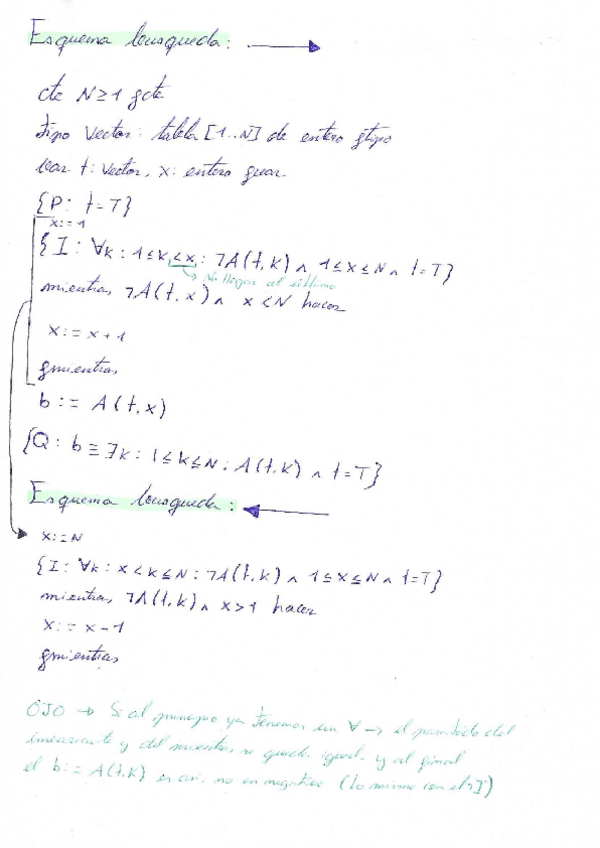 Esquema búsqueda:
cte N≥1 fcte
tipo Vector: tabla [1..N] de entero ftipo
var t: Vector, x: entero fvar
{P: t=T}
x:=1
{I: ∀k: 1≤k<x: ¬A(t,k) ∧ 1≤x≤N ∧ t=T}
No llegas al último
mientras ¬A(t,x) ∧ x<N hacer
x:=x+1
fmientras
b := A(t,x)
{Q: b ≡ ∃k: 1≤k≤N: A(t,k) ∧ t=T}
Esquema búsqueda:
x:=N
{I: ∀k: x<k≤N: ¬A(t,k) ∧ 1≤x≤N ∧ t=T}
mientras ¬A(t,k) ∧ x>1 hacer
x:= x-1
fmientras
OJO → Si al principio ya tenemos un ∀ → el predicado del
invariante y del mientras se queda igual y al final
el b:= A(t,k) es así, no en negativo (Lo mismo con el ¬∃)